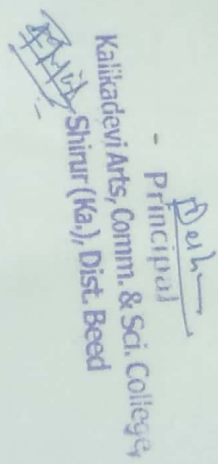 - Principal
Kalikadevi Arts, Comm. & Sci. College,
Shirur (Ka.), Dist. Beed